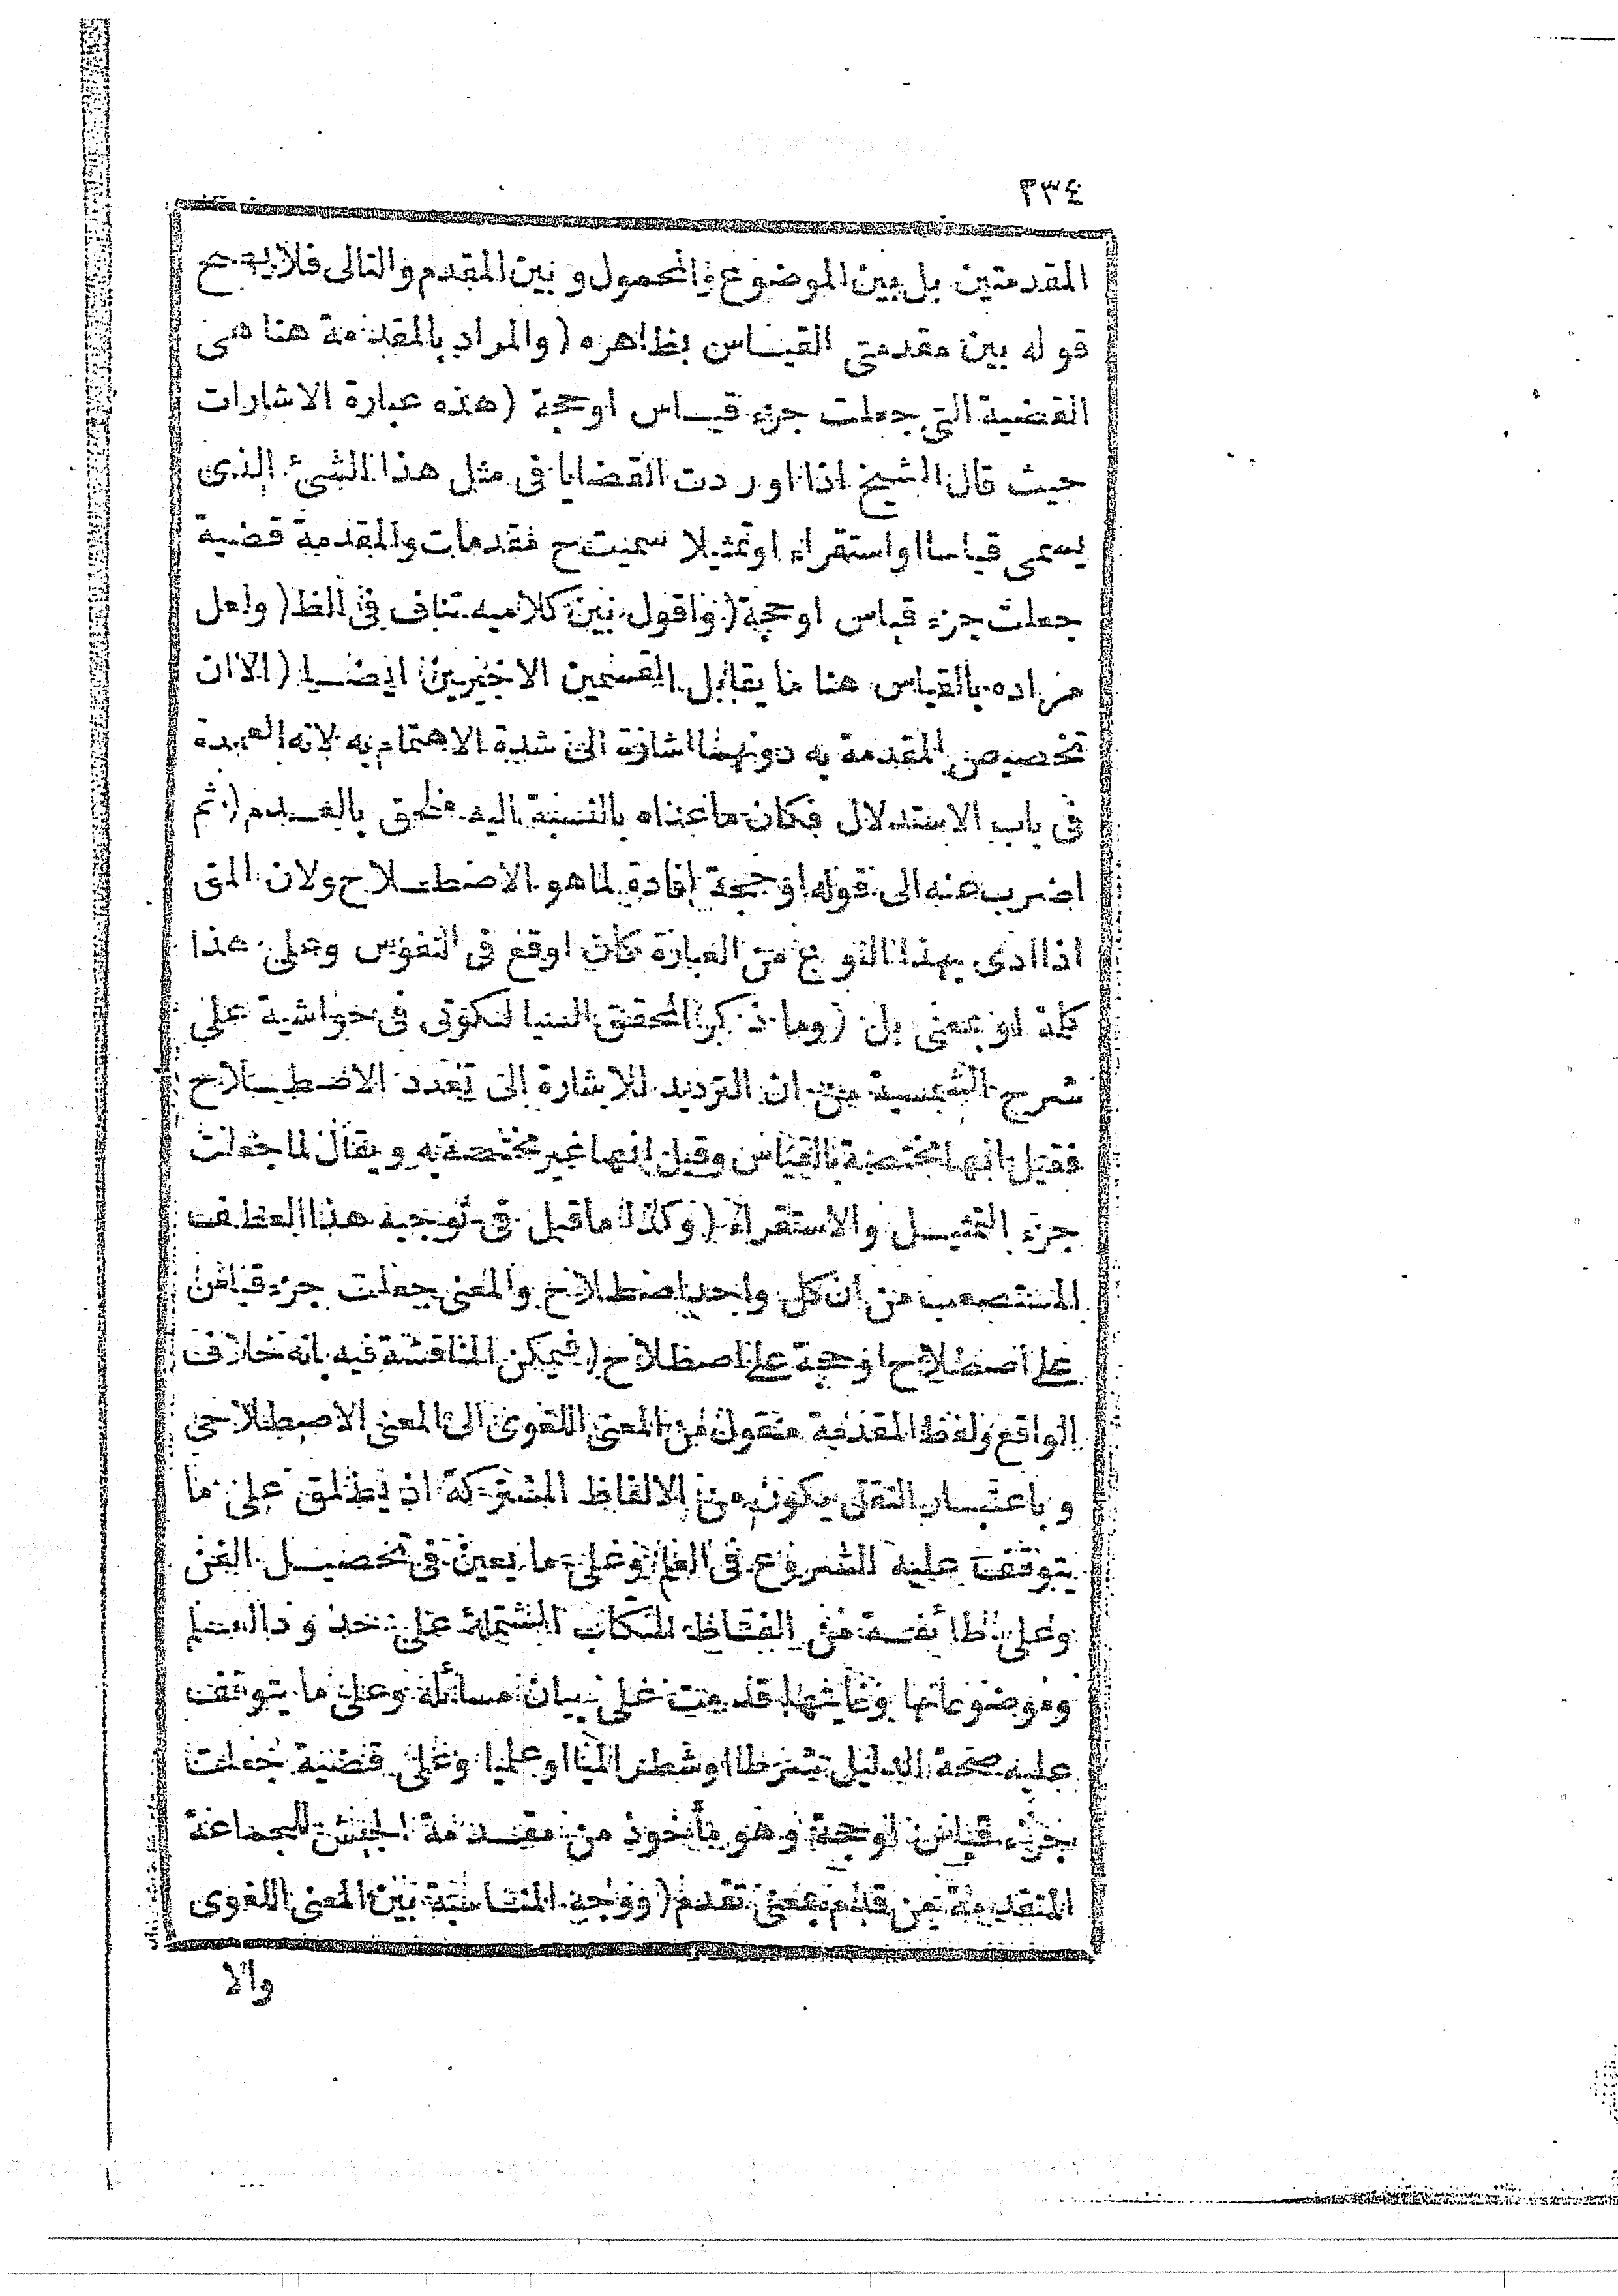 ٢٣٤
المقدمتين بل بين الموضوع والمحمول و بين المقدم والتالى فلا يصح
قوله بين مقدمتى القياس بظاهره ( والمراد بالمقدمة هنا هى
القضية التى جعلت جزء قياس او حجة ( هذه عبارة الاشارات
حيث قال الشيخ اذا اوردت القضايا فى مثل هذا الشئ الذى
يسمى قياسا او استقراء او تمثيلا سميت ح مقدمات والمقدمة قضية
جعلت جزء قياس او حجة ( واقول بين كلاميه تناف فى الظ ( ولعل
مراده بالقياس هنا ما يقابل القسمين الاخيرين ايضا ( الا ان
تخصيص المقدمة به دونهما اشارة الى شدة الاهتمام به لانه العمدة
فى باب الاستدلال فكان ما عداه بالنسبة اليه ملحق بالعدم ( ثم
اضرب عنه الى قوله او حجة افادة لما هو الاصطلاح ولان المق
اذا ادى بهذا النوع من العبارة كان اوقع فى النفوس وعلى هذا
كلمة او بمعنى بل ( وما ذكره المحقق السيالكوتى فى حواشيه على
شرح الشمسية من ان الترديد للاشارة الى تعدد الاصطلاح
فقيل انها مختصة بالقياس وقيل انها غير مختصة به ويقال لما جعلت
جزء التمثيل والاستقراء ( وكذا ما قيل فى توجيه هذا العطف
المستصعب من ان كل واحد اصطلاح والمعنى جعلت جزء قياس
على اصطلاح او حجة على اصطلاح ( فيمكن المناقشة فيه بانه خلاف
الواقع ولفظ المقدمة منقول من المعنى اللغوى الى المعنى الاصطلاحى
و باعتبار النقل يكون من الالفاظ المشتركة اذ يطلق على ما
يتوقف عليه الشروع فى العلم وعلى ما يعين فى تحصيل الفن
وعلى طائفة من الفاظ الكتاب المشتملة على حد و دالعلم
وموضوعاتها وغايتها قدمت على بيان مسائله وعلى ما يتوقف
عليه صحة الدليل شرطا او شطرا وعلى قضية جعلت
جزء قياس او حجة وهو مأخوذ من مقدمة الجيش للجماعة
المتقدمة من قدم بمعنى تقدم ( ووجه المناسبة بين المعنى اللغوى
والا